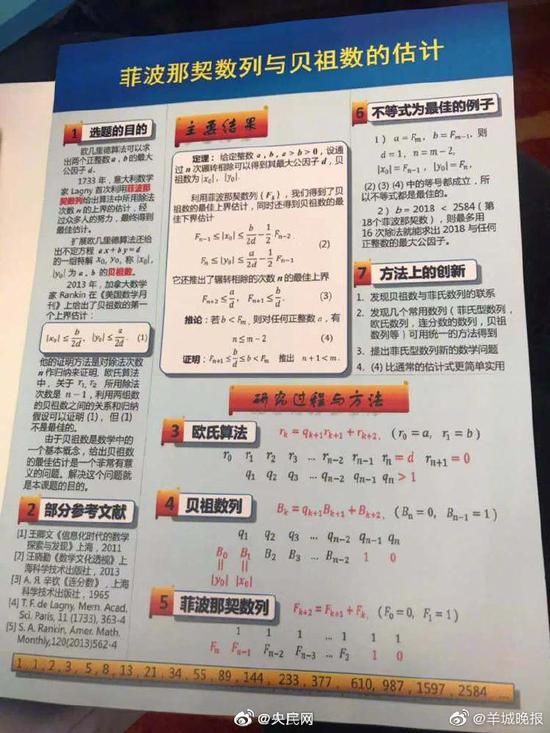 菲波那契数列与贝祖数的估计
1 选题的目的
欧几里德算法可以求
出两个正整数 a , b 的最大
公因子 d .
1733 年，意大利数学
家 Lagny 首次利用菲波那
契数列给出算法中所用除法
次数 n 的上界的估计，经
过众多人的努力，最终得到
最佳估计。
扩展欧几里德算法还给
出不定方程 ax + by = d
的一组特解 x₀, y₀，称 |x₀|,
|y₀| 为 a , b 的贝祖数。
2013 年，加拿大数学
家 Rankin 在《美国数学月
刊》上给出了贝祖数的第一
个上界估计：
|x₀| ≤ b/2d, |y₀| ≤ a/2d. (1)
他的证明方法是对除法次数
n 作归纳来证明. 欧氏算法
中，关于 r₁, r₂ 所用除法
次数是 n − 1，利用两组数
的贝祖数之间的关系和归纳
假设可以证明 (1)，但 (1)
不是最佳的。
由于贝祖数是数学中的
一个基本概念，给出贝祖数
的最佳估计是一个非常有意
义的问题。解决这个问题就
是本课题的目的。
2 部分参考文献
[1] 王卿文《信息化时代的数学
探索与发现》上海，2011
[2] 汪晓勤《数学文化透视》上
海科学技术出版社，2013
[3] A. Я. 辛钦《连分数》，上海
科学技术出版社，1965
[4] T. F. de Lagny, Mem. Acad.
Sci. Paris, 11 (1733), 363-4
[5] S. A. Rankin, Amer. Math.
Monthly,120(2013)562-4
主要结果
定理：给定整数 a, b, a > b > 0，设通
过 n 次辗转相除可以得到其最大公因子 d，贝
祖数为 |x₀|, |y₀|.
利用菲波那契数列 {Fₖ}，我们得到了贝
祖数的最佳上界估计，同时还得到贝祖数的最
佳下界估计
Fₙ₋₁ ≤ |x₀| ≤ b/2d − 1/2 Fₙ₋₂
(2)
Fₙ ≤ |y₀| ≤ a/2d − 1/2 Fₙ₋₁
它还推出了辗转相除的次数 n 的最佳上界
Fₙ₊₂ ≤ a/d, Fₙ₊₁ ≤ b/d. (3)
推论：若 b < Fₘ，则对任何正整数 a，有
n ≤ m − 2 (4)
证明：Fₙ₊₁ ≤ b/d ≤ b < Fₘ 推出 n + 1 < m .
6 不等式为最佳的例子
1） a = Fₘ, b = Fₘ₋₁, 则
d = 1, n = m − 2,
|x₀| = Fₙ₋₁, |y₀| = Fₙ,
(2) (3) (4) 中的等号都成立，所
以不等式都是最佳的。
2） b = 2018 < 2584 (第
18个菲波那契数），则最多用
16 次除法就能求出 2018 与任何
正整数的最大公因子。
7 方法上的创新
1. 发现贝祖数与菲氏数列的联系
2. 发现几个常用数列（菲氏型数列，
欧氏数列，连分数的数列，贝祖
数列等）可用统一的方法得到
3. 提出菲氏型数列新的数学问题
4. (4) 比通常的估计式更简单实用
研究过程与方法
3 欧氏算法 rₖ = qₖ₊₁rₖ₊₁ + rₖ₊₂, （r₀ = a, r₁ = b）
r₀ r₁ r₂ r₃ ... rₙ₋₂ rₙ₋₁ rₙ = d rₙ₊₁ = 0
q₁ q₂ q₃ ... qₙ₋₂ qₙ₋₁ qₙ > 1
4 贝祖数列 Bₖ = qₖ₊₁Bₖ₊₁ + Bₖ₊₂, （Bₙ = 0, Bₙ₋₁ = 1）
q₁ q₂ q₃ ... qₙ₋₂ qₙ₋₁ qₙ
B₀ B₁ B₂ B₃ ... Bₙ₋₂ 1 0
|| ||
|y₀| |x₀|
5 菲波那契数列 Fₖ₊₂ = Fₖ₊₁ + Fₖ, （F₀ = 0, F₁ = 1）
1 1 1 ... 1 1 1
Fₙ Fₙ₋₁ Fₙ₋₂ Fₙ₋₃ ... F₂ 1 0
1, 1, 2, 3, 5, 8, 13, 21, 34, 55, 89, 144, 233, 377, 610, 987, 1597, 2584 ...
@央民网
@羊城晚报